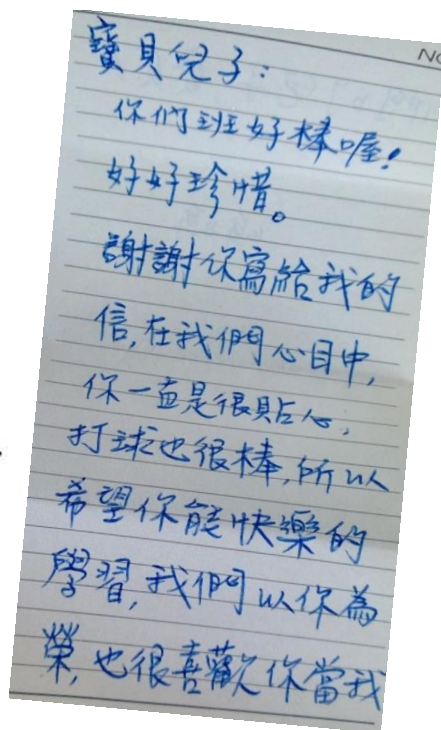 NO
寶貝兒子:
你們班好棒喔!
好好珍惜。
謝謝你寫給我的
信,在我們心目中,
你一直是很貼心,
打球也很棒,所以
希望你能快樂的
學習,我們以你為
榮,也很喜歡你當我